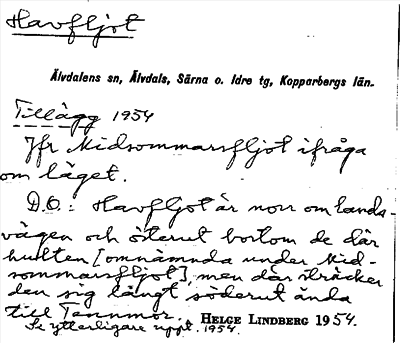 Havfljot
Älvdalens sn, Älvdals, Särna o. Idre tg, Kopparbergs län.
Tillägg 1954
Jfr Midsommarsfljot ifråga
om läget.
D.O.: Havfljot är norr om lands-
vägen och österut bortom de där
hulten [omnämnda under Mid-
sommarsfljot], men där sträcker
den sig långt söderut ända
till Tannmor. HELGE LINDBERG 1954.
Se ytterligare uppt. 1954.